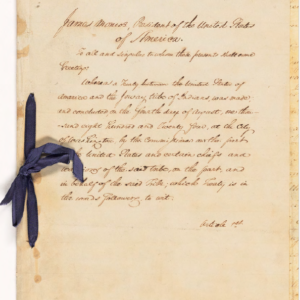 James Monroe, President of the United States
of America.
To all and singular to whom these presents shall come
Greeting:
Whereas a Treaty between the United States of
America and the tribe of Indians, was made
and concluded, on the fourth day of August, one thou-
sand eight hundred and twenty four, at the City
of Washington, by the Commissioner on the part
of the United States and certain chiefs and
of the said tribe, on the part, and
in behalf of the said Tribe; which Treaty is in
the words following to wit:
Article 1st